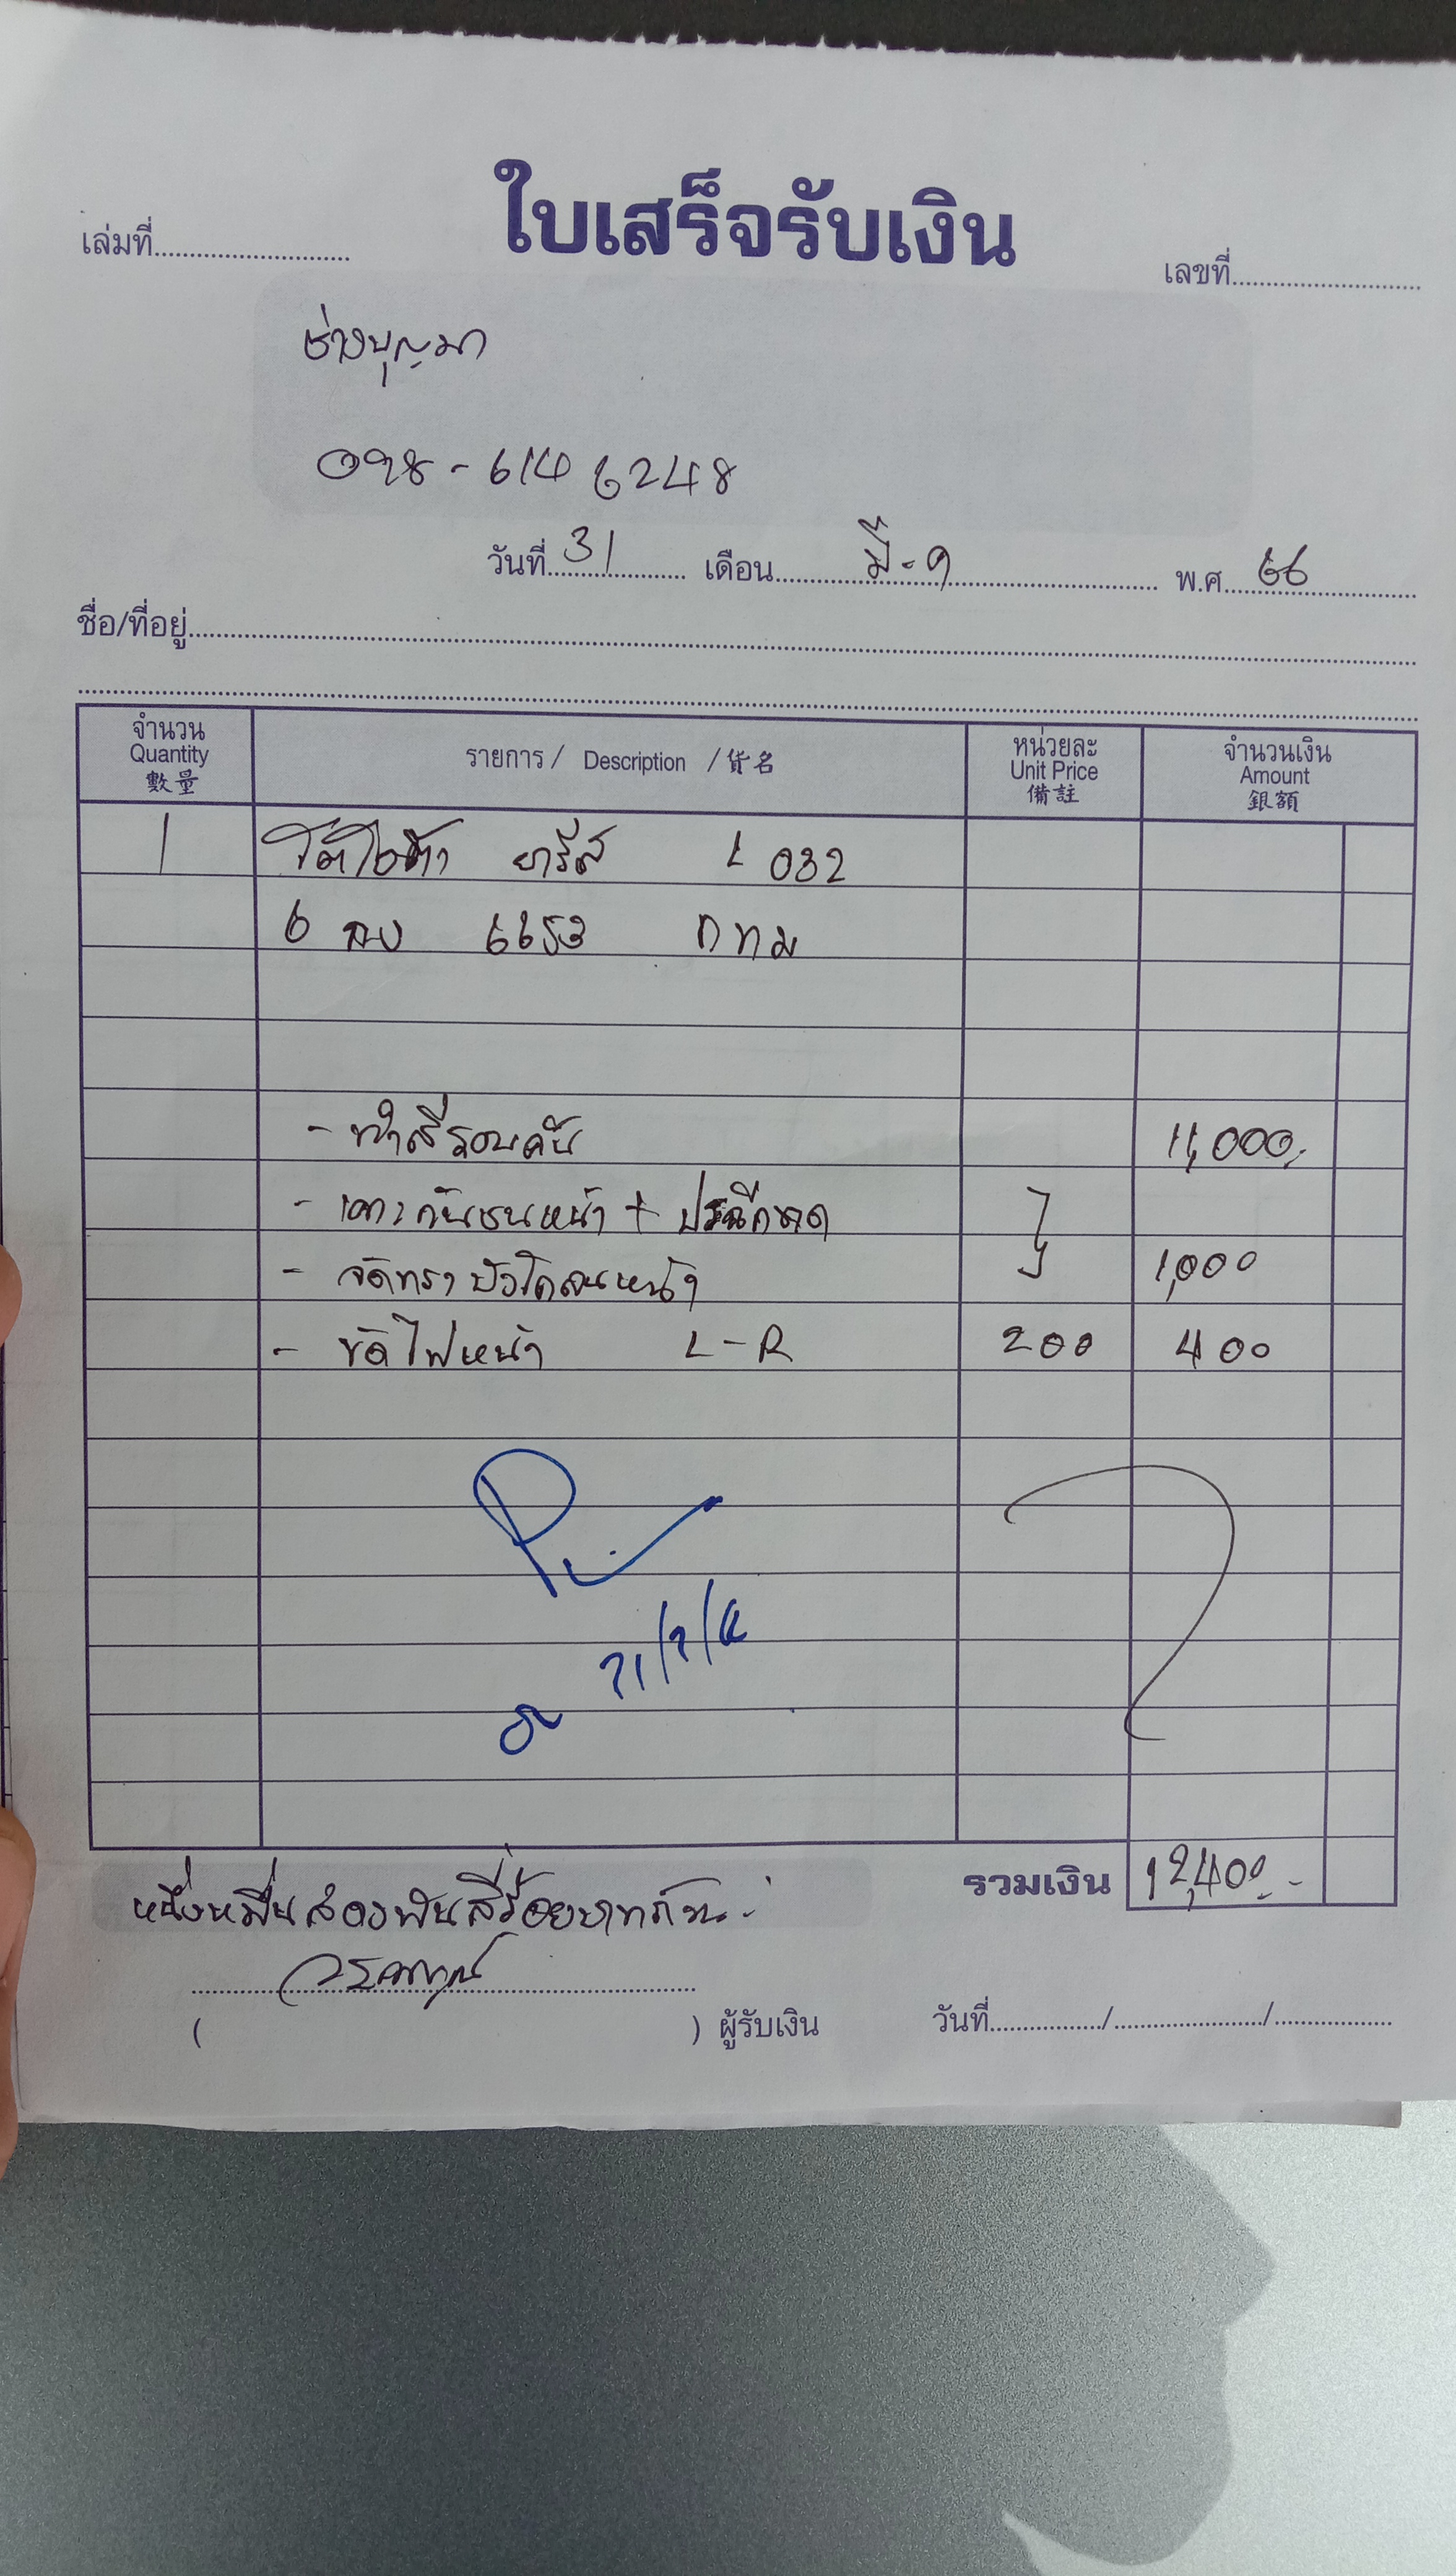 ใบเสร็จรับเงิน
เล่มที่
เลขที่
ช่างบุญมา
098-614 6248
วันที่ 31 เดือน มี.ค พ.ศ. 66
ชื่อ/ที่อยู่
จำนวน รายการ / Description / 貨名 หน่วยละ จำนวนเงิน
Quantity Unit Price Amount
數量 備註 銀額
1 โตโยต้า ยารีส L 032
6 กบ 6653 กทม
- ทำสีรอบคัน 11,000.-
- เคาะกันชนหน้า +
- หน้า 1,000
- ขัดไฟหน้า L-R 200 400
รวมเงิน 12,400.-
หนึ่งหมื่นสองพันสี่ร้อยบาทถ้วน.-
( ) ผู้รับเงิน วันที่ / /